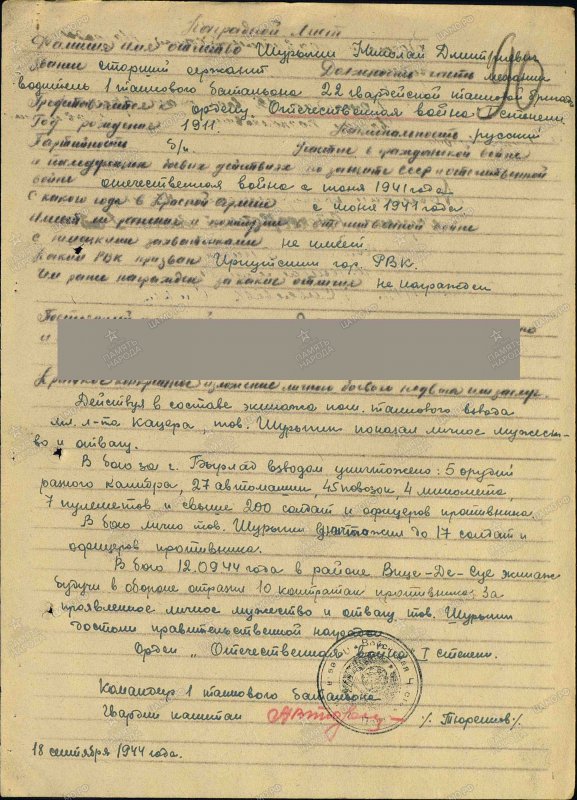 Наградной Лист
Фамилия имя отчество Шурыгин Николай Дмитриевич
Звание старший сержант Должность часть механик
водитель 1 танкового батальона 22 гвардейской танковой бригады
Представляется ордену Отечественная война I степени
Год рождения 1911. Национальность русский
Партийность б/п Участие в гражданской войне
и последующих боевых действиях по защите СССР и отечественной
войне отечественная война с июня 1941 года.
С какого года в Красной Армии с июня 1941 года
Имеет ли ранения и контузии в отечественной войне
с немецкими захватчиками не имеет
Каким РВК призван Иркутским гор. РВК.
Чем ранее награжден за какие отличия не награжден
и
Краткое конкретное изложение личного боевого подвига или заслуг.
Действуя в составе экипажа ком. танкового взвода
мл. л-та Кацера, тов. Шурыгин показал личное мужест-
во и отвагу.
В бою за г. Бырлад взводом уничтожено: 5 орудий
разного калибра, 27 автомашин, 45 повозок, 4 миномета,
7 пулеметов и свыше 200 солдат и офицеров противника.
В бою лично тов. Шурыгин уничтожил до 17 солдат и
офицеров противника.
В бою 12.09.44 года в районе Вице-Де-Сус экипаж
будучи в обороне отразил 10 контратак противника. За
проявленное личное мужество и отвагу тов. Шурыгин
достоин правительственной награды
Орден „Отечественная война" I степени.
Командир 1 танкового батальона
Гвардии капитан /. Тюренков./
18 сентября 1944 года.
ПАМЯТЬ НАРОДА
ЦАМО.РФ